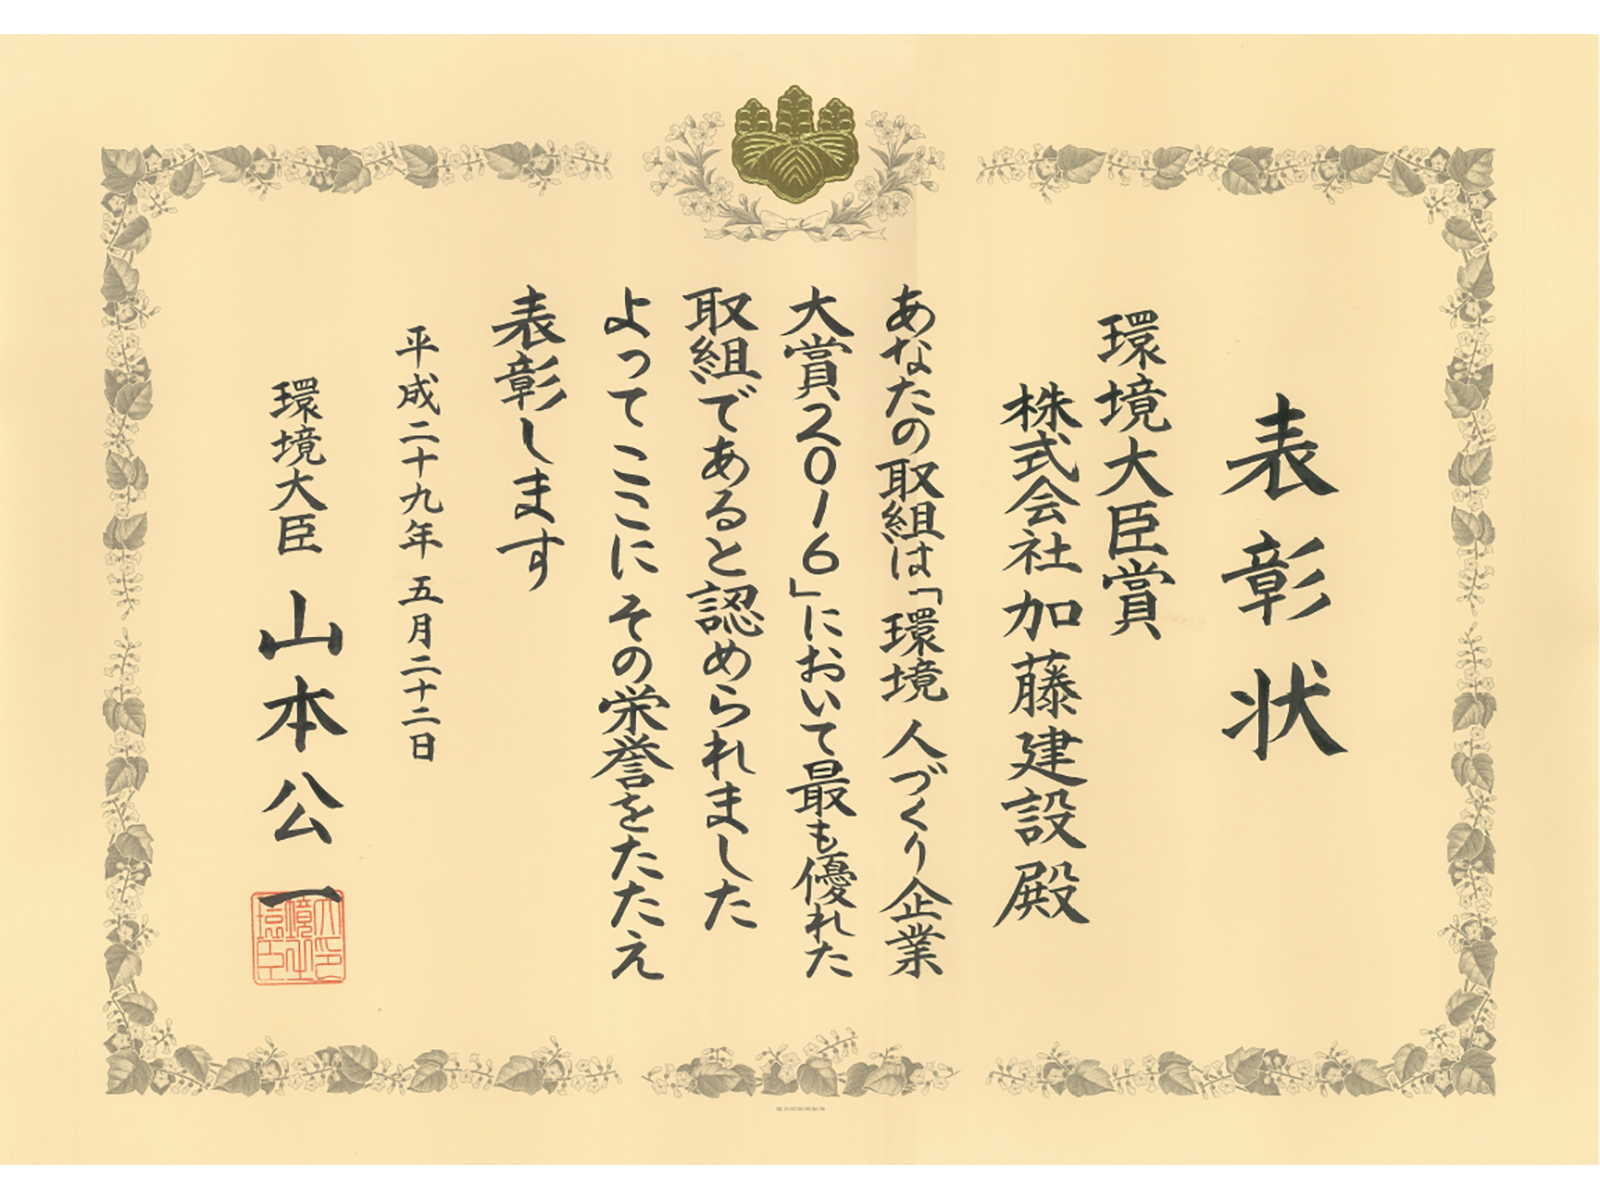 表彰状
環境大臣賞
株式会社加藤建設殿
あなたの取組は「環境 人づくり企業
大賞2016」において最も優れた
取組であると認められました
よってここにその栄誉をたたえ
表彰します
平成二十九年 五月二十二日
環境大臣 山本公一